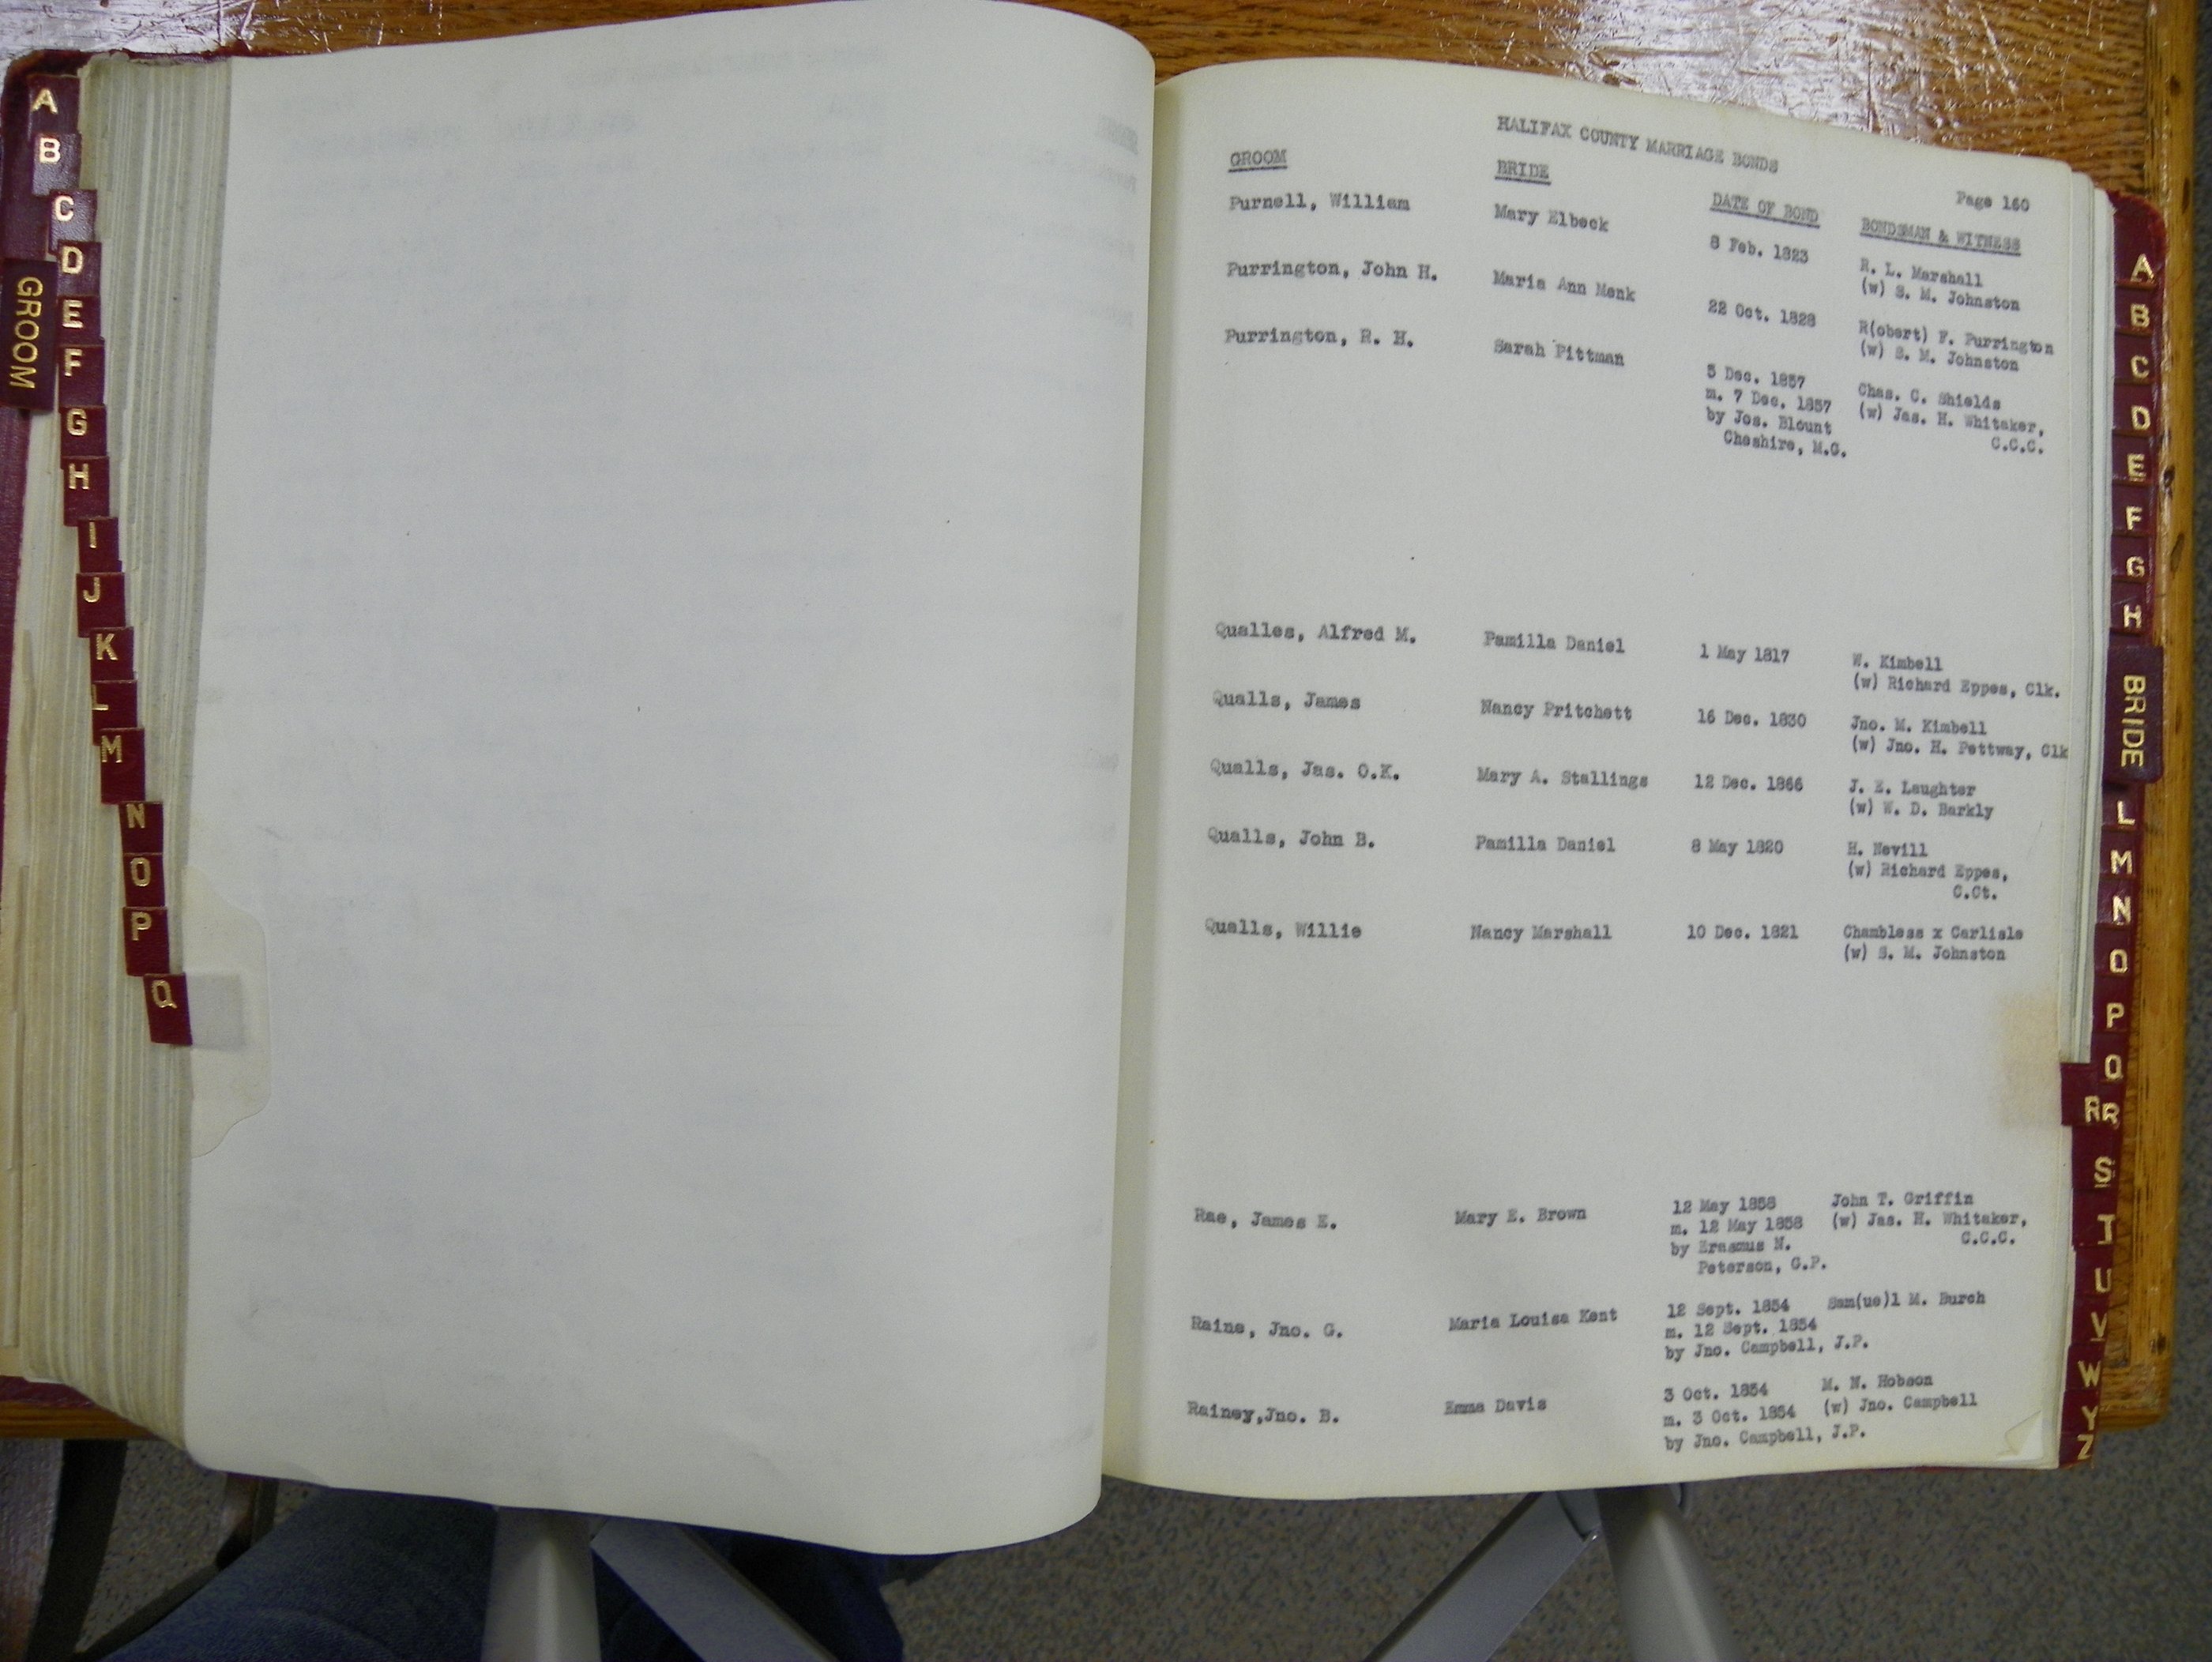 A
B
C
D
E
F
G
H
I
J
K
L
M
N
O
P
Q
GROOM
HALIFAX COUNTY MARRIAGE BONDS
Page 160
GROOM BRIDE DATE OF BOND BONDSMAN & WITNESS
Purnell, William Mary Elbeck 8 Feb. 1823 R. L. Marshall
(w) S. M. Johnston
Purrington, John H. Maria Ann Menk 22 Oct. 1828 R(obert) F. Purrington
(w) S. M. Johnston
Purrington, R. H. Sarah Pittman 5 Dec. 1857 Chas. C. Shields
m. 7 Dec. 1857 (w) Jas. H. Whitaker,
by Jos. Blount C.C.C.
Cheshire, M.G.
Qualles, Alfred M. Pamilla Daniel 1 May 1817 W. Kimbell
(w) Richard Eppes, Clk.
Qualls, James Nancy Pritchett 16 Dec. 1830 Jno. M. Kimbell
(w) Jno. H. Pettway, Clk
Qualls, Jas. O.K. Mary A. Stallings 12 Dec. 1866 J. E. Laughter
(w) W. D. Barkly
Qualls, John B. Pamilla Daniel 8 May 1820 H. Nevill
(w) Richard Eppes,
C.Ct.
Qualls, Willie Nancy Marshall 10 Dec. 1821 Chambless x Carlisle
(w) S. M. Johnston
Rae, James E. Mary E. Brown 12 May 1858 John T. Griffin
m. 12 May 1858 (w) Jas. H. Whitaker,
by Erasmus N. C.C.C.
Peterson, G.P.
Raine, Jno. G. Maria Louisa Kent 12 Sept. 1854 Sam(ue)l M. Burch
m. 12 Sept. 1854
by Jno. Campbell, J.P.
Rainey,Jno. B. Emma Davis 3 Oct. 1854 M. N. Hobson
m. 3 Oct. 1854 (w) Jno. Campbell
by Jno. Campbell, J.P.
A
B
C
D
E
F
G
H
BRIDE
L
M
N
O
P
Q
R R
S
T
U
V
W
Y
Z